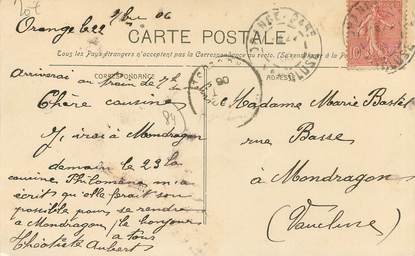 Orange le 22 7bre 06
CARTE POSTALE
Tous les Pays étrangers n'acceptent pas la Correspondance au recto. (Se renseigner à la Poste)
CORRESPONDANCE
ADRESSE
Arriverai au train de 7h
Chère cousine
J'irai à Mondragon
demain le 23 la
cousine Philomène m'a
écrit qu'elle ferait son
possible pour se rendre
à Mondragon, le bonjour
à tous
Théotiste Aubert
84
Madame Marie Bastet
rue Basse
à Mondragon
(Vaucluse)